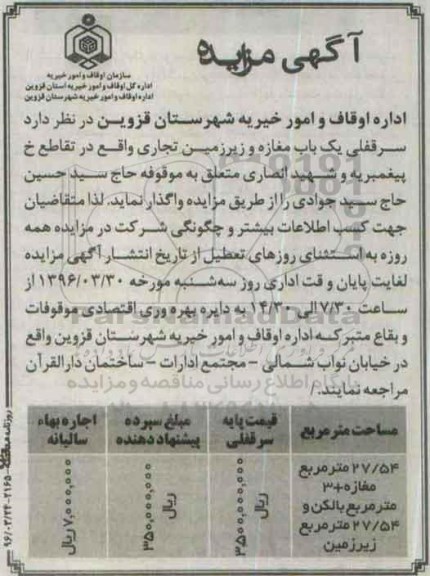 آگهی مزایده
سازمان اوقاف و امور خیریه
اداره کل اوقاف و امور خیریه استان قزوین
اداره اوقاف و امور خیریه شهرستان قزوین
اداره اوقاف و امور خیریه شهرستان قزوین در نظر دارد
سرقفلی یک باب مغازه و زیرزمین تجاری واقع در تقاطع خ
پیغمبریه و شهید انصاری متعلق به موقوفه حاج سید حسین
حاج سید جوادی را از طریق مزایده واگذار نماید. لذا متقاضیان
جهت کسب اطلاعات بیشتر و چگونگی شرکت در مزایده همه
روزه به استثنای روزهای تعطیل از تاریخ انتشار آگهی مزایده
لغایت پایان وقت اداری روز سه‌شنبه مورخه ۱۳۹۶/۰۳/۳۰ از
ساعت ۷/۳۰ الی ۱۴/۳۰ به دایره بهره وری اقتصادی موقوفات
و بقاع متبرکه اداره اوقاف و امور خیریه شهرستان قزوین واقع
در خیابان نواب شمالی - مجتمع ادارات - ساختمان دارالقرآن
مراجعه نمایند./
ParsNamadData
پایگاه اطلاع رسانی مناقصه و مزایده
مساحت متر مربع
قیمت پایه سرقفلی
مبلغ سپرده پیشنهاد دهنده
اجاره بهاء سالیانه
۲۷/۵۴ مترمربع
مغازه+۳
مترمربع بالکن و
۲۷/۵۴ مترمربع
زیرزمین
۳۵۰۰,۰۰۰,۰۰۰ ریال
۳۵۰,۰۰۰,۰۰۰ ریال
۷,۰۰۰,۰۰۰ ریال
۹۶/۰۳/۲۴-۲۱۶۵